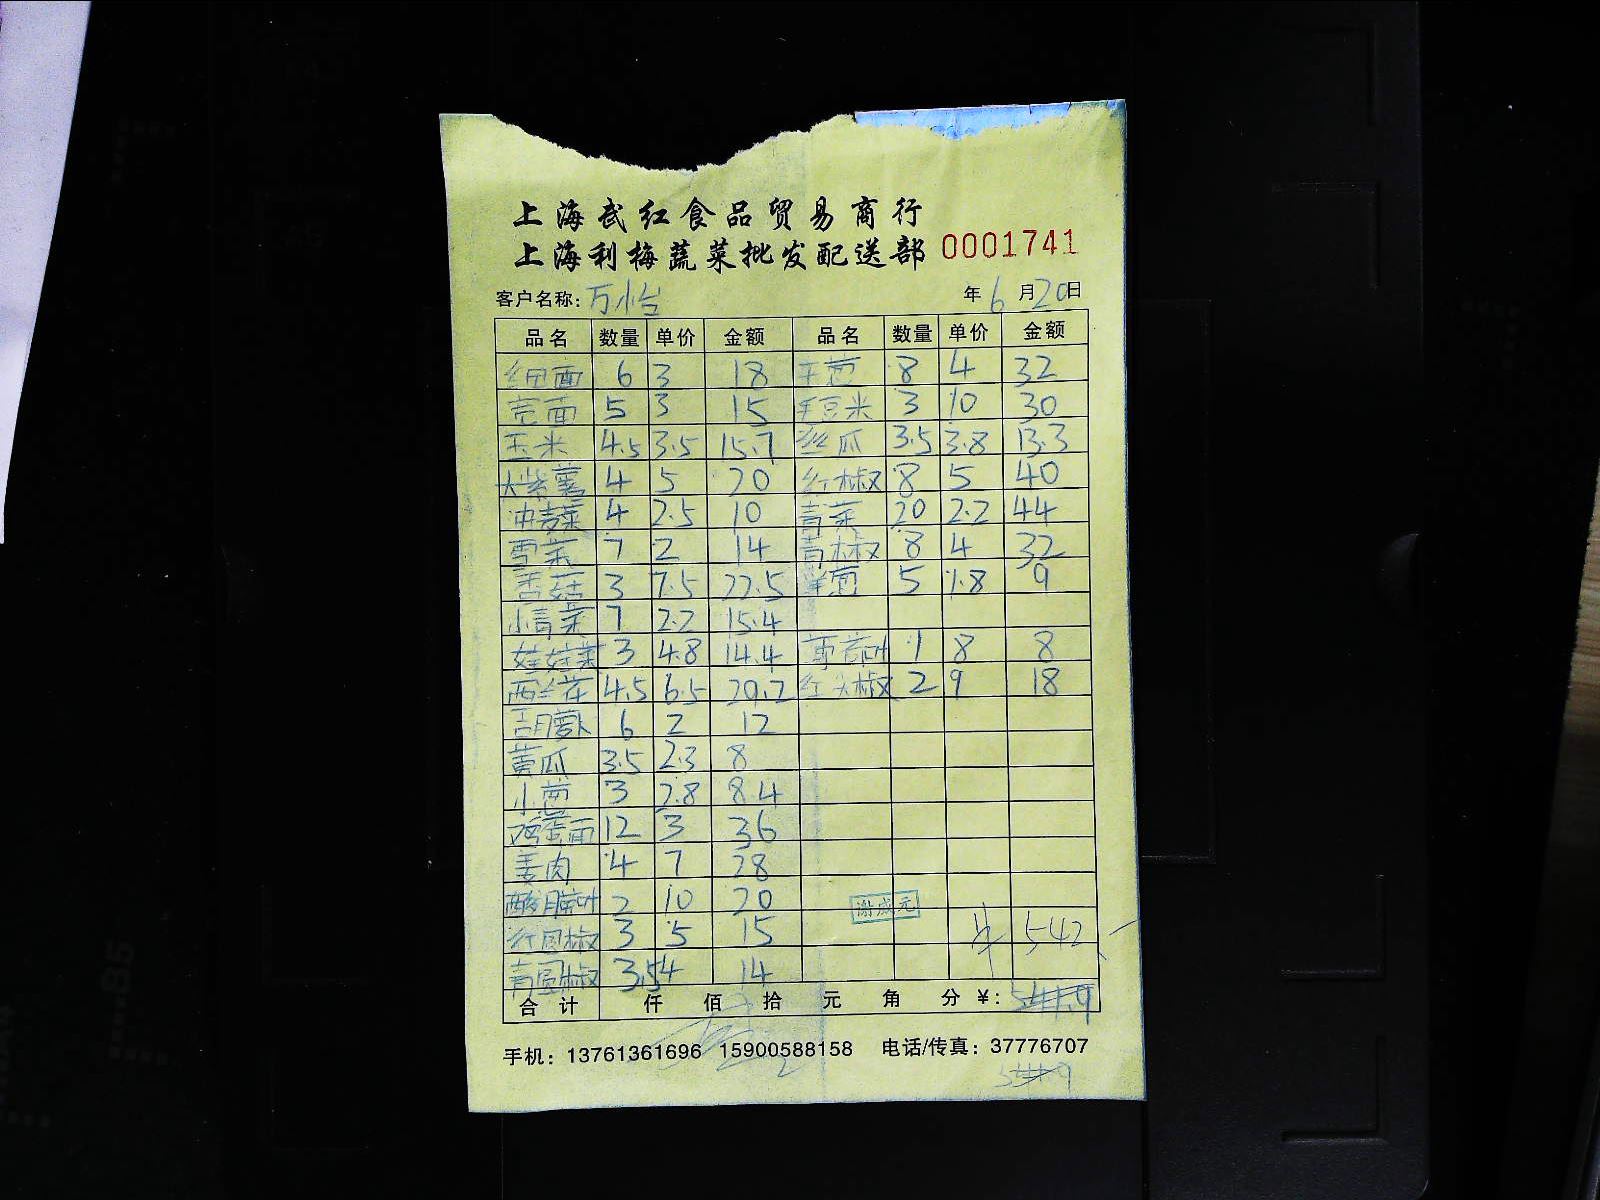 上海武红食品贸易商行
上海利梅蔬菜批发配送部 0001741
客户名称: 万怡 年 6 月 20 日
品名 数量 单价 金额 品名 数量 单价 金额
细面 6 3 18 毛葱 8 4 32
宽面 5 3 15 毛豆米 3 10 30
玉米 4.5 3.5 15.7 丝瓜 3.5 3.8 13.3
大紫薯 4 5 20 红椒 8 5 40
4 2.5 10 青菜 20 2.2 44
雪菜 7 2 14 青椒 8 4 32
香菇 3 7.5 22.5 洋葱 5 1.8 9
小青菜 7 2.2 15.4
娃娃菜 3 4.8 14.4 1 8 8
西兰花 4.5 6.5 29.2 红尖椒 2 9 18
胡萝卜 6 2 12
黄瓜 3.5 2.3 8
小葱 3 2.8 8.4
鸡蛋面 12 3 36
姜肉 4 7 28
2 10 20
红圆椒 3 5 15
青圆椒 3.5 4 14
谢成元
542
合计 仟 佰 拾 元 角 分 ¥:
手机: 13761361696 15900588158 电话/传真: 37776707